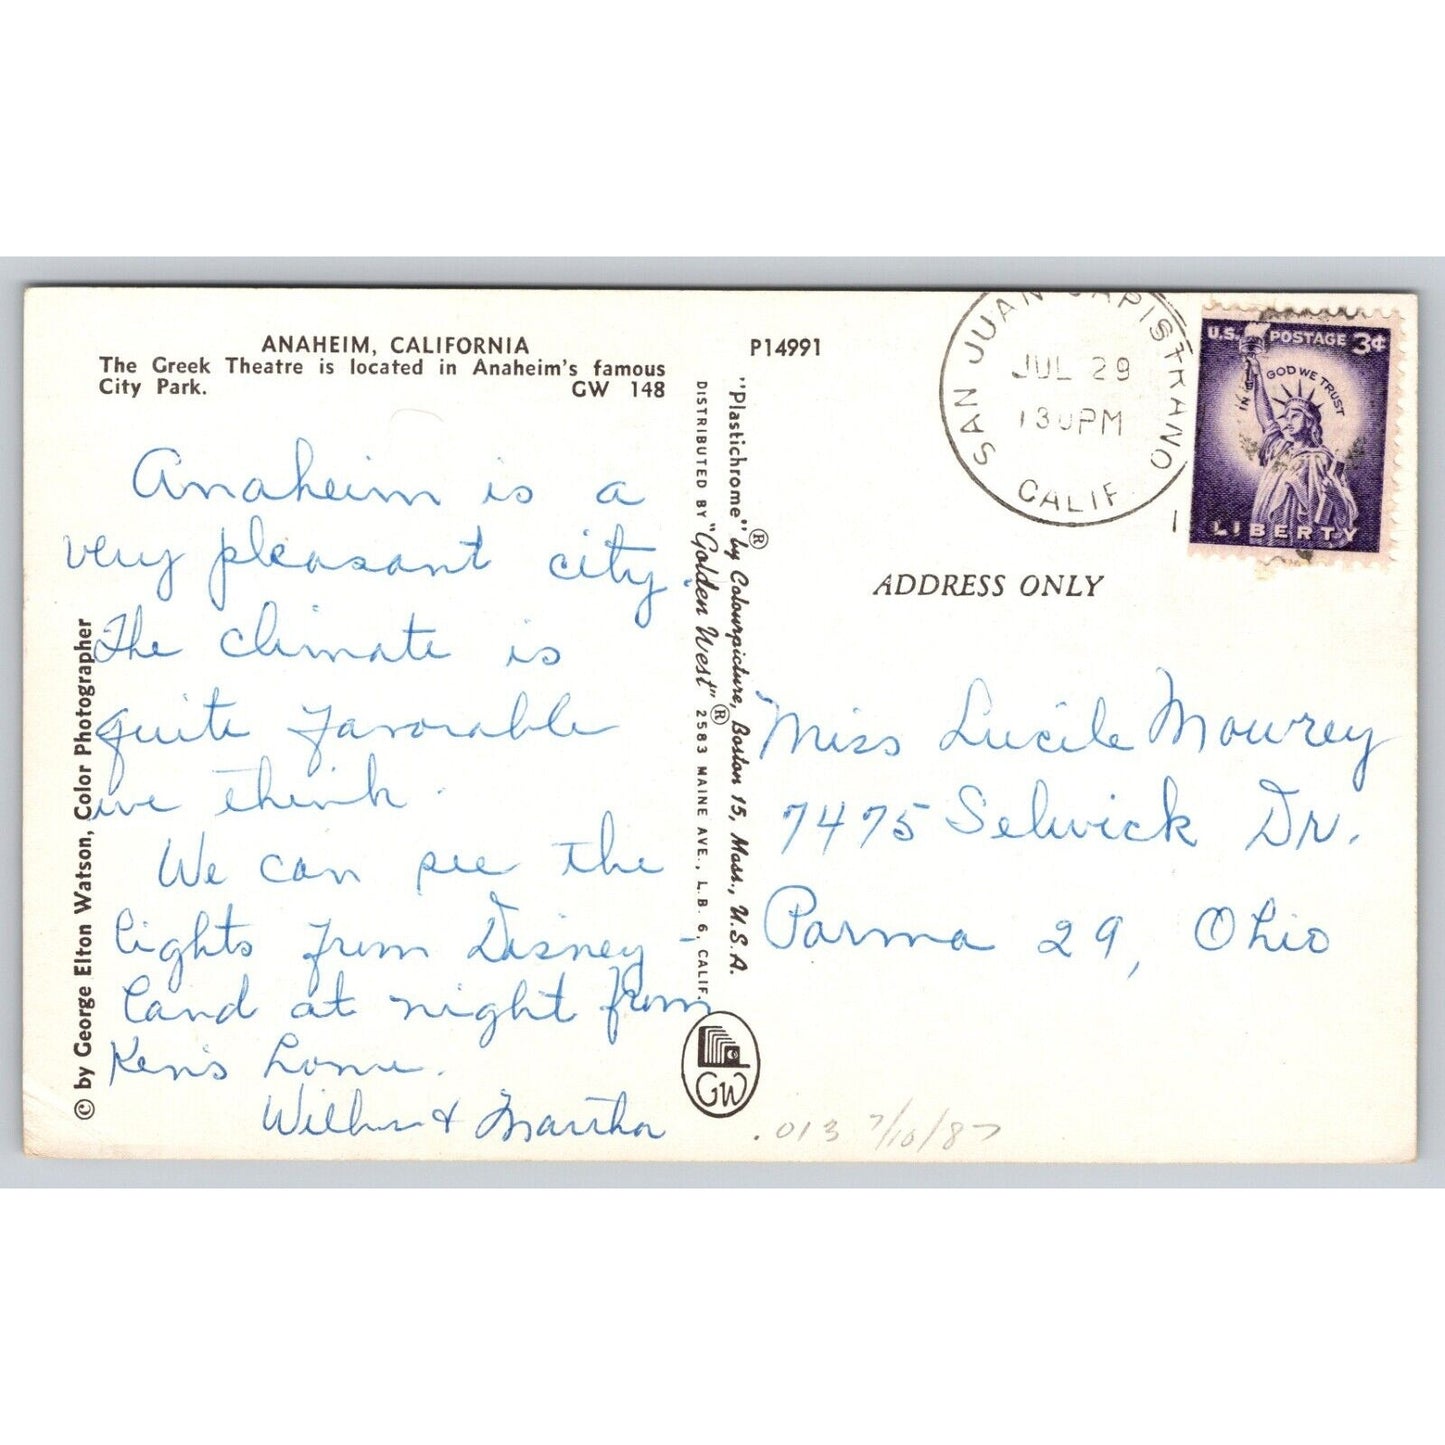 ANAHEIM, CALIFORNIA
The Greek Theatre is located in Anaheim's famous
City Park. GW 148
Anaheim is a
very pleasant city.
The climate is
quite favorable
we think.
We can see the
lights from Disney-
land at night from
Ken's home.
Wilbur & Martha
© by George Elton Watson, Color Photographer
DISTRIBUTED BY "Golden West"® 2583 MAINE AVE., L.B. 6, CALIF.
"Plastichrome"® by Colourpicture, Boston 15, Mass., U.S.A.
GW
P14991
SAN JUAN CAPISTRANO
JUL 29
130PM
CALIF.
U.S. POSTAGE 3¢
IN GOD WE TRUST
LIBERTY
ADDRESS ONLY
Miss Lucile Mowrey
7475 Selwick Dr.
Parma 29, Ohio
.013 7/10/87